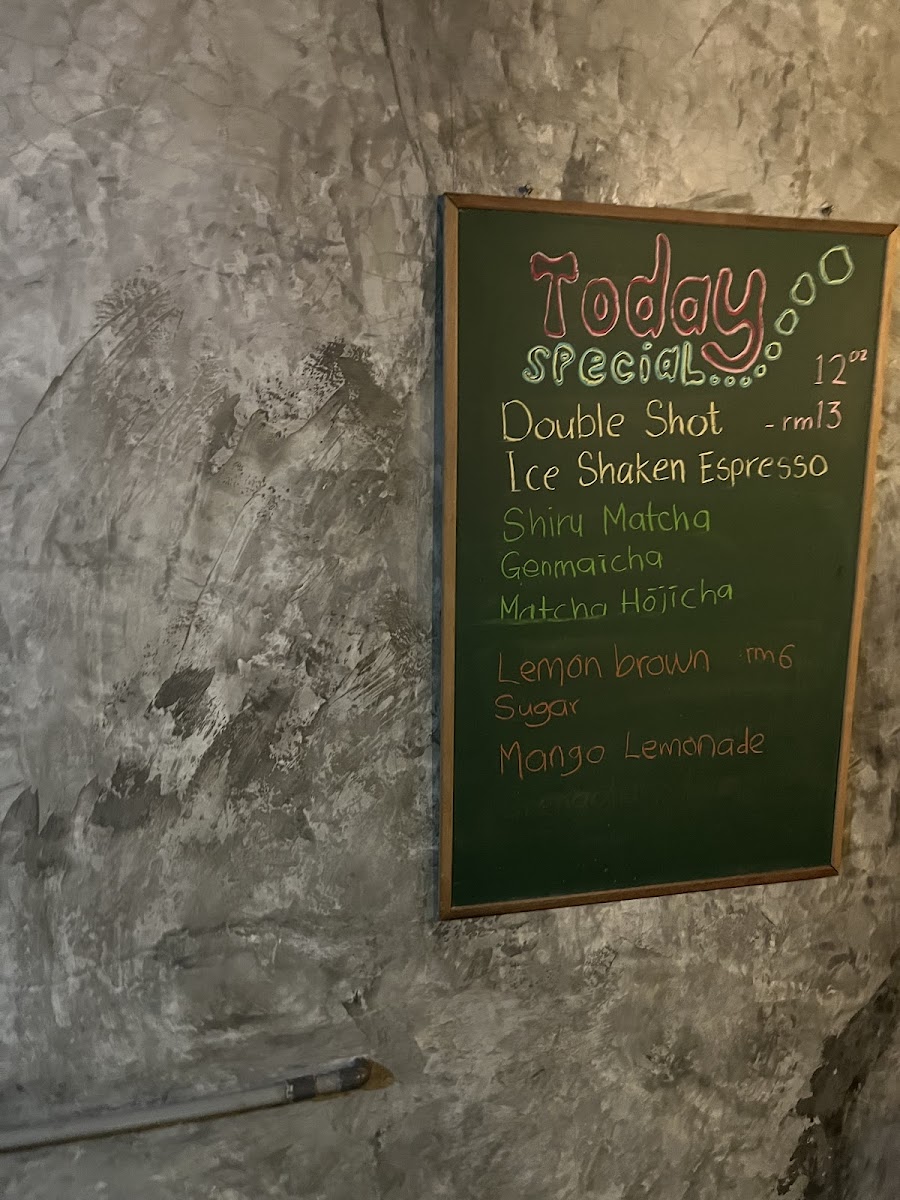 Today
special....
12oz
Double Shot - rm13
Ice Shaken Espresso
Shiru Matcha
Genmaicha
Matcha Hōjīcha
Lemon brown rm6
Sugar
Mango Lemonade